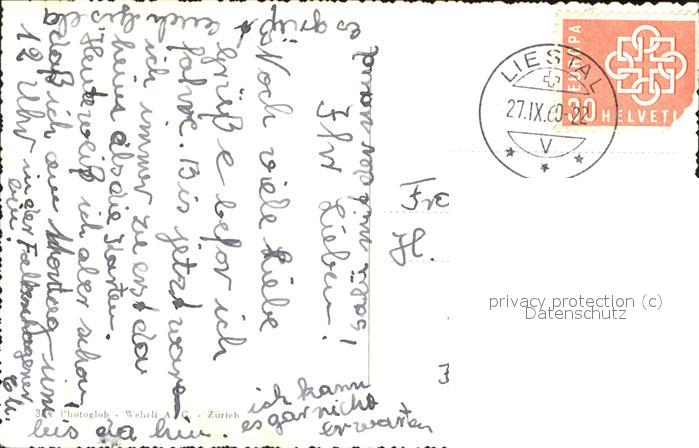 Ihr Lieben!
Noch viele liebe
Grüße bevor ich
fahre. Bis jetzt war
ich immer zuerst da
heim als die Karten.
Heute weiß ich aber schon
daß ich am Montag um
12 Uhr in der Falkenhagener
bin.
bis dahin.
ich kann
es gar nicht
erwarten
es grüßt
euch
LIESTAL
27.IX.60-22
V
EUROPA
30 HELVETIA
Fre
H.
privacy protection (c)
Datenschutz
Photoglob - Wehrli A. G. - Zürich